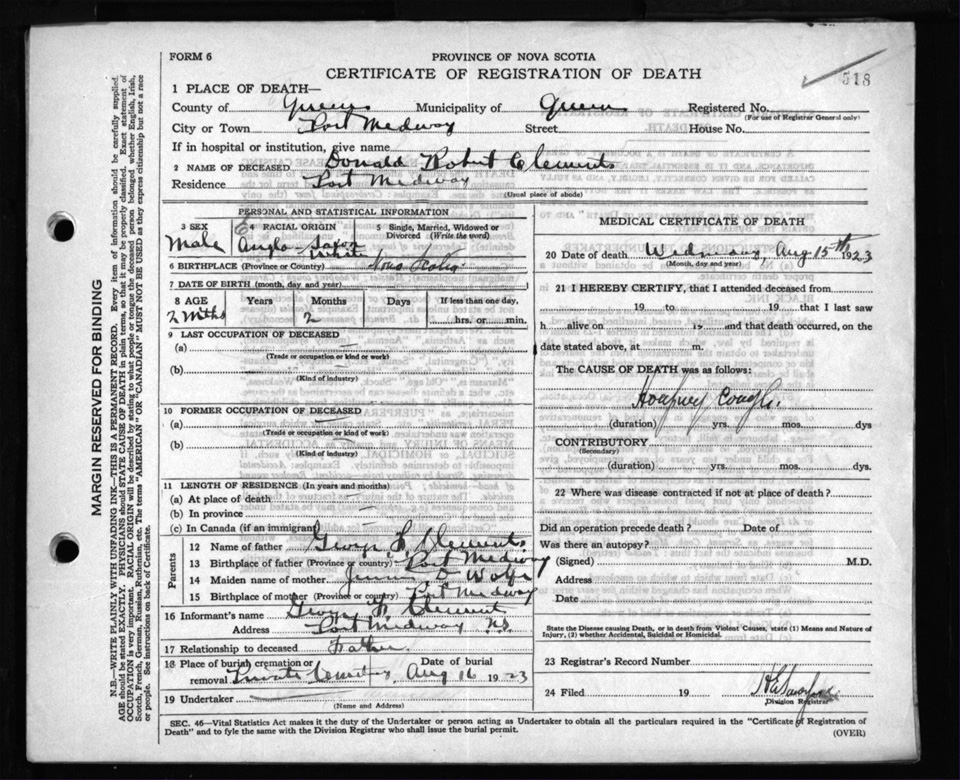 FORM 6
PROVINCE OF NOVA SCOTIA
CERTIFICATE OF REGISTRATION OF DEATH
518
1 PLACE OF DEATH—
County of Queens Municipality of Queens Registered No.
(For use of Registrar General only)
City or Town Port Medway Street House No.
If in hospital or institution, give name
2 NAME OF DECEASED Donald Robert Clements
Residence Port Medway
(Usual place of abode)
PERSONAL AND STATISTICAL INFORMATION
3 SEX 4 RACIAL ORIGIN Single, Married, Widowed or Divorced (Write the word)
Male Anglo-Saxon
White
6 BIRTHPLACE (Province or Country) Nova Scotia
7 DATE OF BIRTH (month, day and year)
8 AGE Years Months Days If less than one day,
2 Mths 2 hrs. or min.
9 LAST OCCUPATION OF DECEASED
(a)
(Trade or occupation or kind of work)
(b)
(Kind of industry)
10 FORMER OCCUPATION OF DECEASED
(a)
(Trade or occupation or kind of work)
(b)
(Kind of industry)
11 LENGTH OF RESIDENCE (In years and months)
(a) At place of death
(b) In province
(c) In Canada (if an immigrant)
Parents
12 Name of father George Clements
13 Birthplace of father (Province or country) Port Medway
14 Maiden name of mother Wolfe
15 Birthplace of mother (Province or country) Port Medway
16 Informant's name George Clements
Address Port Medway N.S.
17 Relationship to deceased Father
18 Place of burial cremation or removal Private Cemetery Date of burial Aug 16 1923
19 Undertaker
(Name and Address)
MEDICAL CERTIFICATE OF DEATH
20 Date of death Wednesday, Aug 15th 1923
(Month, day and year)
21 I HEREBY CERTIFY, that I attended deceased from
19 to 19 that I last saw
h alive on 19 and that death occurred, on the
date stated above, at m.
The CAUSE OF DEATH was as follows:
Whooping Cough.
(duration) yrs. mos. dys
CONTRIBUTORY
(Secondary)
(duration) yrs. mos. dys.
22 Where was disease contracted if not at place of death?
Did an operation precede death? Date of
Was there an autopsy?
(Signed) M.D.
Address
Date
State the Disease causing Death, or in death from Violent Causes, state (1) Means and Nature of Injury, (2) whether Accidental, Suicidal or Homicidal.
23 Registrar's Record Number
24 Filed 19
Division Registrar
SEC. 46—Vital Statistics Act makes it the duty of the Undertaker or person acting as Undertaker to obtain all the particulars required in the "Certificate of Registration of
Death" and to fyle the same with the Division Registrar who shall issue the burial permit.
(OVER)
MARGIN RESERVED FOR BINDING
N.B.—WRITE PLAINLY WITH UNFADING INK—THIS IS A PERMANENT RECORD. Every item of information should be carefully supplied.
AGE should be stated EXACTLY. PHYSICIANS should STATE CAUSE OF DEATH in plain terms, so that it may be properly classified. Exact statement of
OCCUPATION is very important. RACIAL ORIGIN will be described by stating to what people or tongue the deceased person belonged whether English, Irish,
Scotch, French, German, Russian, Ruthenian, etc. The terms "AMERICAN" OR "CANADIAN" MUST NOT BE USED as they express citizenship but not a race
or people. See instructions on back of Certificate.